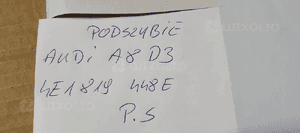 PODSZYBIE
AUDi A8 D3
4E1 819 448E
P.S